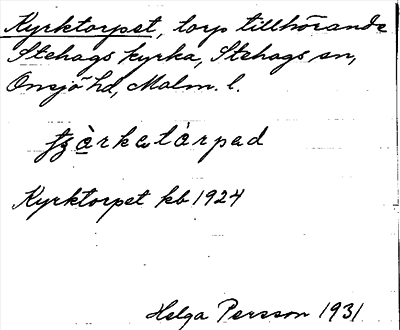 Kyrktorpet, torp tillhörande
Stehags kyrka, Stehags sn,
Onsjö hd, Malm. l.
Kyrktorpet kb 1924
Helga Persson 1931